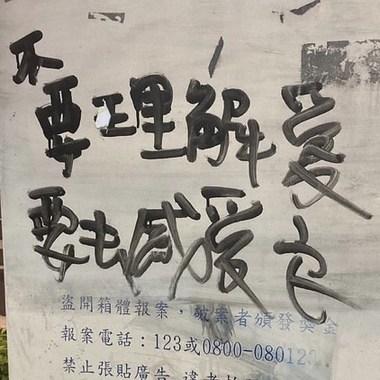 不要去理解愛
要去感受它
盜開箱體報案，破案者頒發獎金
報案電話：123或0800-08012
禁止張貼廣告 違者